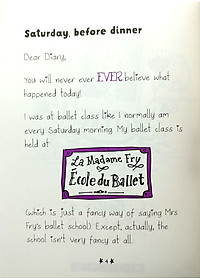 Saturday, before dinner
Dear Diary,
You will never ever EVER believe what
happened today!
I was at ballet class like I normally am
every Saturday morning. My ballet class is
held at:
La Madame Fry
École du Ballet
(which is just a fancy way of saying Mrs
Fry's ballet school). Except, actually, the
school isn't very fancy at all.
4